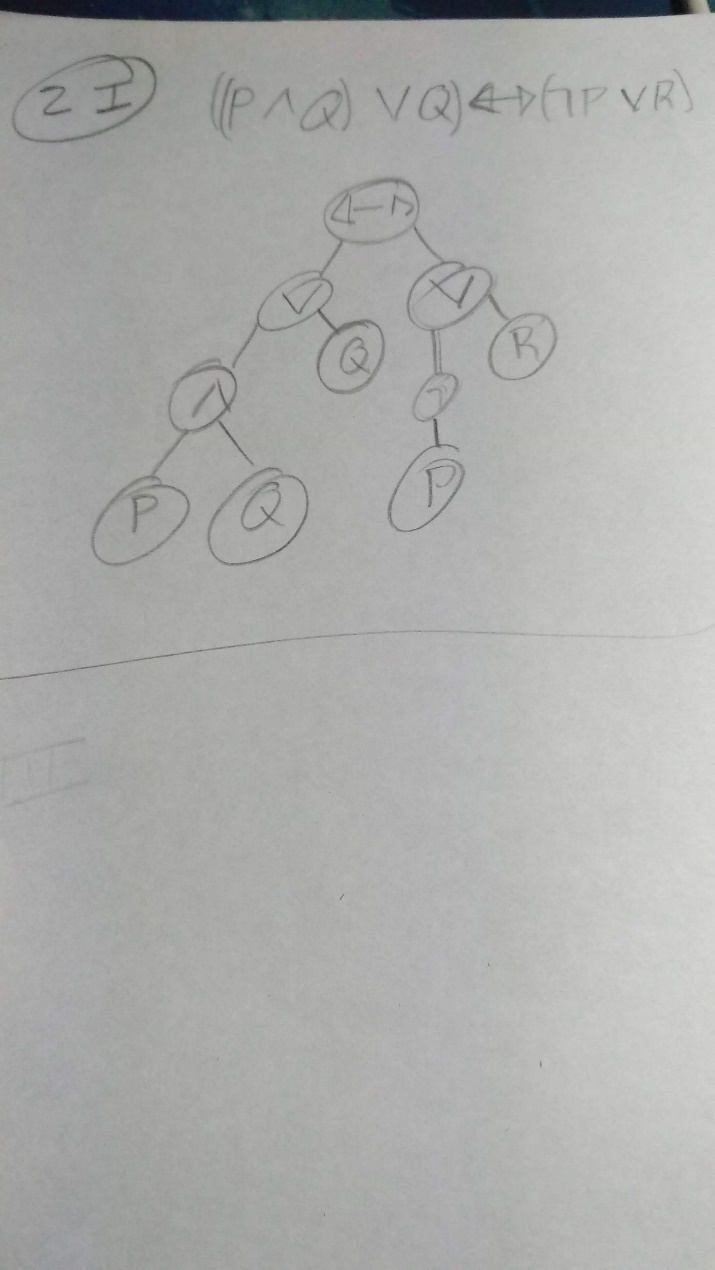 2 I ((P ∧ Q) ∨ Q) ↔ (¬P ∨ R)
↔
∨ ∨
Q R
∧ ¬
P Q P